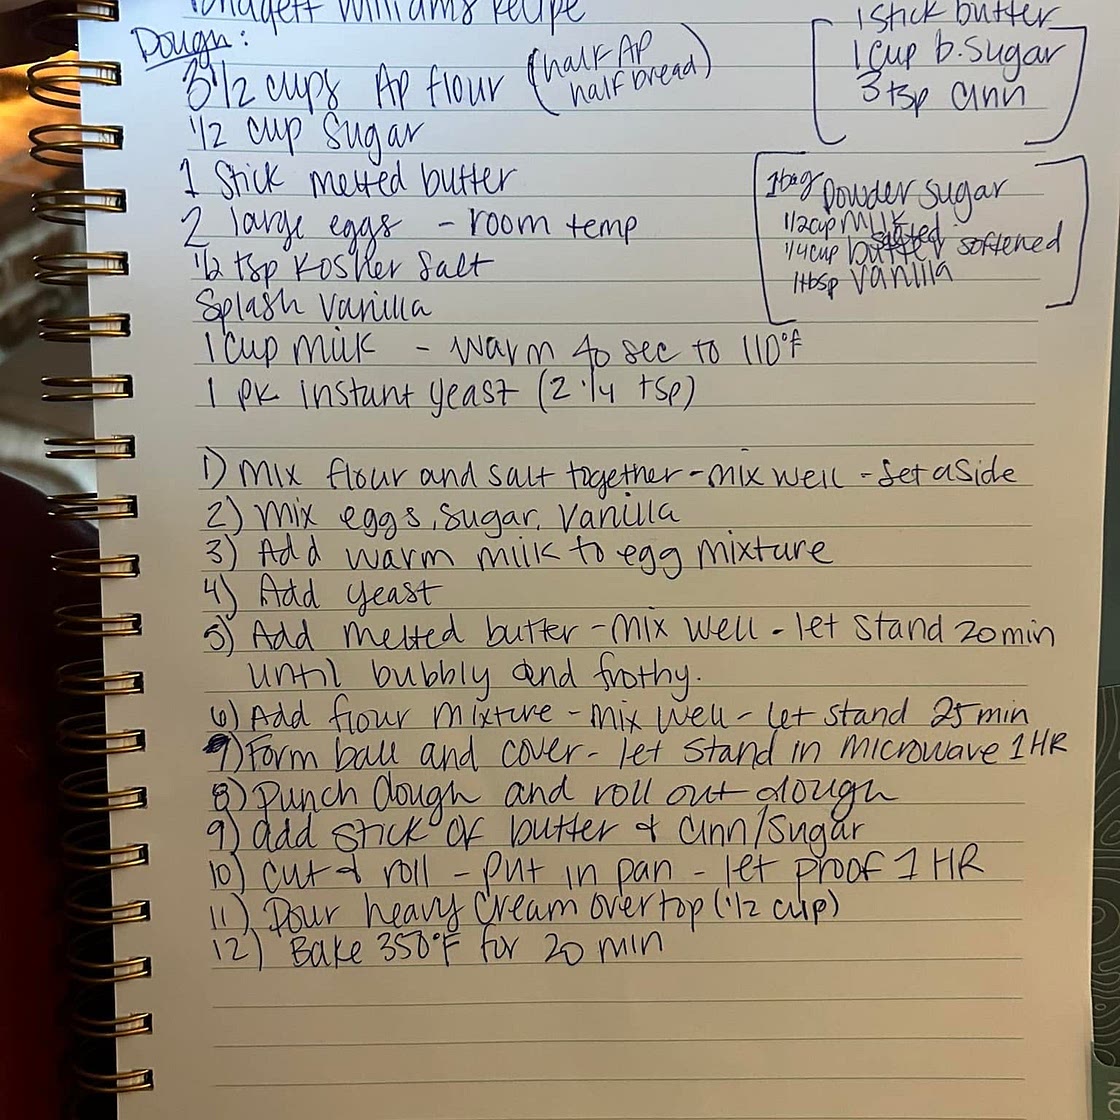 Williams Recipe
Dough:
3 1/2 cups AP flour (half AP half bread)
1/2 cup Sugar
1 Stick melted butter
2 large eggs - room temp
1/2 tsp Kosher Salt
Splash Vanilla
1 cup milk - warm 40 sec to 110°F
1 pk instant yeast (2 1/4 tsp)
1 stick butter
1 cup b. sugar
3 tsp cinn
1 bag powder sugar
1/2 cup milk
1/4 cup butter softened
1 tbsp vanilla
1) Mix flour and salt together - mix well - set aside
2) Mix eggs, sugar, vanilla
3) Add warm milk to egg mixture
4) Add yeast
5) Add melted butter - mix well - let stand 20 min
until bubbly and frothy.
6) Add flour mixture - mix well - let stand 25 min
7) Form ball and cover - let stand in microwave 1 HR
8) Punch dough and roll out dough
9) add stick of butter & cinn/sugar
10) cut & roll - put in pan - let proof 1 HR
11) Pour heavy cream over top (1/2 cup)
12) Bake 350°F for 20 min